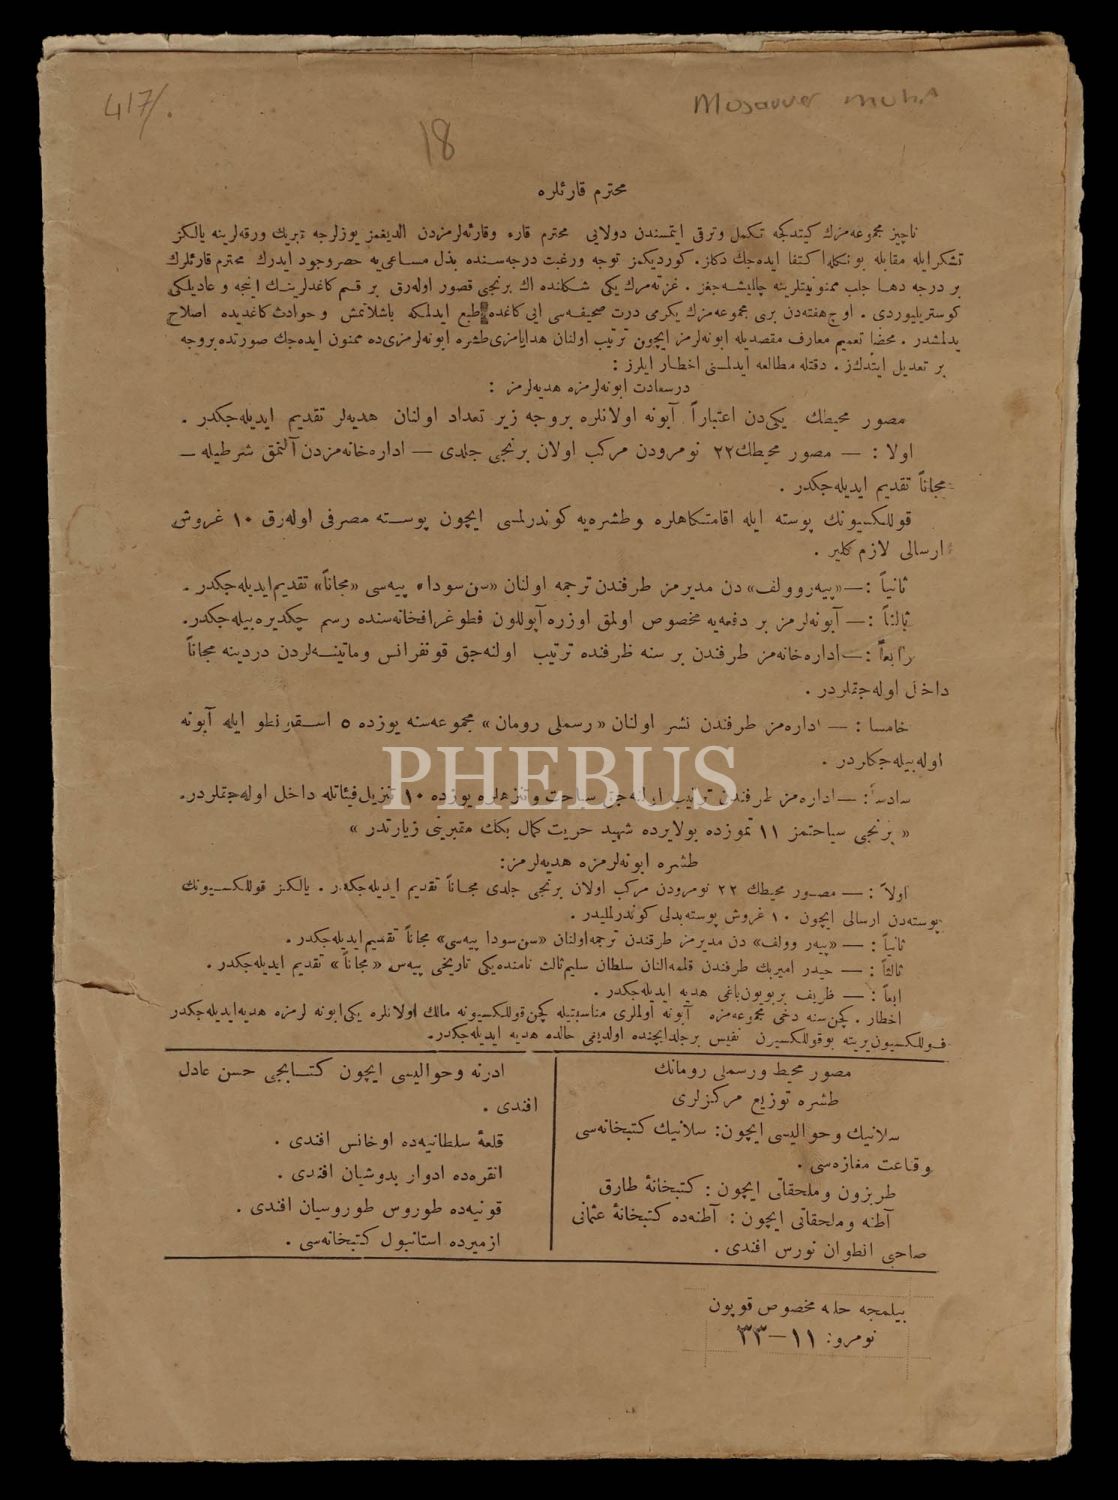 417/.
Mosavver muh
18
محترم قارئلره
ناچیز مجموعه‌مزك كیتدكجه تكمل وترقی ایتمسندن دولایی محترم قاره وقارئه‌لرمزدن الدیغمز یوزلرجه تبریك ورقه‌لرینه یالكز
تشكرایله مقابله بونكله اكتفا ایده‌جك دكلز. كوردیكمز توجه ورغبت درجه‌سنده بذل مساعی‌یه حصروجود ایدرك محترم قارئلرك
بر درجه دها جلب ممنونیتلرینه چالیشه‌جغز . غزته‌مزك یكی شكلنده اك برنجی قصور اوله‌رق بر قسم كاغدلرینك اینجه و عادیلكی
كوستریلیوردی . اوچ هفته‌دن بری مجموعه‌مزك یكرمی درت صحیفه‌سی ایی كاغده طبع ایدلمكه باشلاتمش وحوادث كاغدیده اصلاح
یدلمشدر . محضا تعمیم معارف مقصدیله ابونه‌لرمز ایچون ترتیب اولنان هدایامزی طشره ابونه‌لرمزی‌ده ممنون ایده‌جك صورتده بروجه
بر تعدیل ایتدكز . دقتله مطالعه ایدلمسنی اخطار ایلرز :
درسعادت ابونه‌لرمزه هدیه‌لرمز :
مصور محیطك یكی‌دن اعتباراً آبونه اولانلره بروجه زیر تعداد اولنان هدیه‌لر تقدیم ایدیله‌جكدر .
اولا : — مصور محیطك ٢٢ نومرودن مركب اولان برنجی جلدی — اداره‌خانه‌مزدن آلنمق شرطیله —
مجاناً تقدیم ایدیله‌جكدر .
قوللكسیونك پوسته ایله اقامتكاهلره وطشره‌یه كوندرلمسی ایچون پوسته مصرفی اوله‌رق ١٠ غروش
ارسالی لازم كلیر .
ثانیاً : — «پیه‌ر وولف» دن مدیرمز طرفندن ترجمه اولنان «سن سودا» پیه‌سی «مجاناً» تقدیم ایدیله‌جكدر .
ثالثاً : — آبونه‌لرمز بر دفعه‌یه مخصوص اولمق اوزره آپوللون فطوغرافخانه‌سنده رسم چكدیره‌بیله‌جكدر.
رابعاً : — اداره‌خانه‌مز طرفندن بر سنه ظرفنده ترتیب اولنه‌جق قونفرانس وماتینه‌لردن دردینه مجاناً
داخل اوله‌جقلردر .
خامسا : — اداره‌مز طرفندن نشر اولنان «رسملی رومان» مجموعه‌سنه یوزده ٥ اسقونطو ایله آبونه
اوله‌بیله‌جكلردر .
سادساً : — اداره‌مز طرفندن ترتیب اولنه‌جق سیاحت وتنزهلره یوزده ١٠ تنزیل فیئاتله داخل اوله‌جقلردر.
« برنجی سیاحتمز ١١ تموزده بولایرده شهید حریت كمال بكك مقبرینی زیارتدر »
طشره ابونه‌لرمزه هدیه‌لرمز:
اولاً : — مصور محیطك ٢٢ نومرودن مركب اولان برنجی جلدی مجاناً تقدیم ایدیله‌جكدر . یالكز قوللكسیونك
پوسته‌دن ارسالی ایچون ١٠ غروش پوسته‌بدلی كوندرلملیدر .
ثانیاً : — «پیه‌ر وولف» دن مدیرمز طرفندن ترجمه‌اولنان «سن سودا پیه‌سی» مجاناً تقدیم ایدیله‌جكدر .
ثالثاً : — حیدر امیربك طرفندن قلمه‌النان سلطان سلیم ثالث نامنده‌یكی تاریخی پیه‌س «مجاناً» تقدیم ایدیله‌جكدر .
ابعاً : — ظریف بربویون‌باغی هدیه ایدیله‌جكدر .
اخطار . كچن‌سنه دخی مجموعه‌مزه آبونه اولملری مناسبتیله كچن قوللكسیونه مالك اولانلره یكی‌ابونه لرمزه هدیه‌ایدیله‌جكدر
قوللكسیون یرینه بوقوللكسیون نفیس برجلدایچنده اولدیغی حالده هدیه ایدیله‌جكدر.
مصور محیط ورسملی رومانك
طشره توزیع مركزلری
سلانیك وحوالیسی ایچون: سلانیك كتبخانه‌سی
وقناعت مغازه‌سی .
طربزون وملحقاتی ایچون : كتبخانهٔ طارق
آطنه وملحقاتی ایچون : آطنه‌ده كتبخانهٔ عثمانی
صاحبی انطوان نورس افندی .
ادرنه وحوالیسی ایچون كتابجی حسن عادل
افندی .
قلعهٔ سلطانیه‌ده اوخانس افندی .
انقره‌ده ادوار بدوشیان افندی .
قونیه‌ده طوروس طوروسیان افندی .
ازمیرده استانبول كتبخانه‌سی .
بیلمجه حله مخصوص قوپون
نومرو: ١١—٣٣
PHEBUS